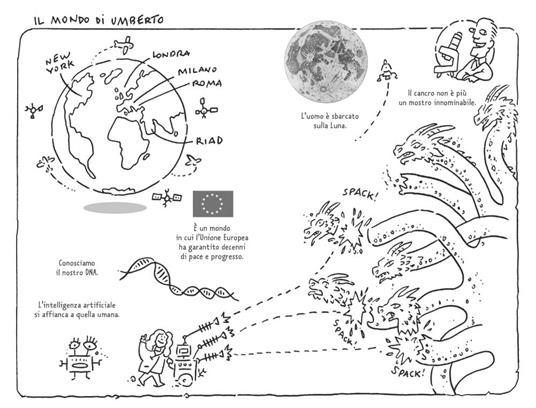 IL MONDO DI UMBERTO
NEW
YORK
LONDRA
MILANO
ROMA
RIAD
L'uomo è sbarcato
sulla Luna.
Il cancro non è più
un mostro innominabile.
SPACK!
È un mondo
in cui l'Unione Europea
ha garantito decenni
di pace e progresso.
Conosciamo
il nostro DNA.
L'intelligenza artificiale
si affianca a quella umana.
SPACK!
SPACK!